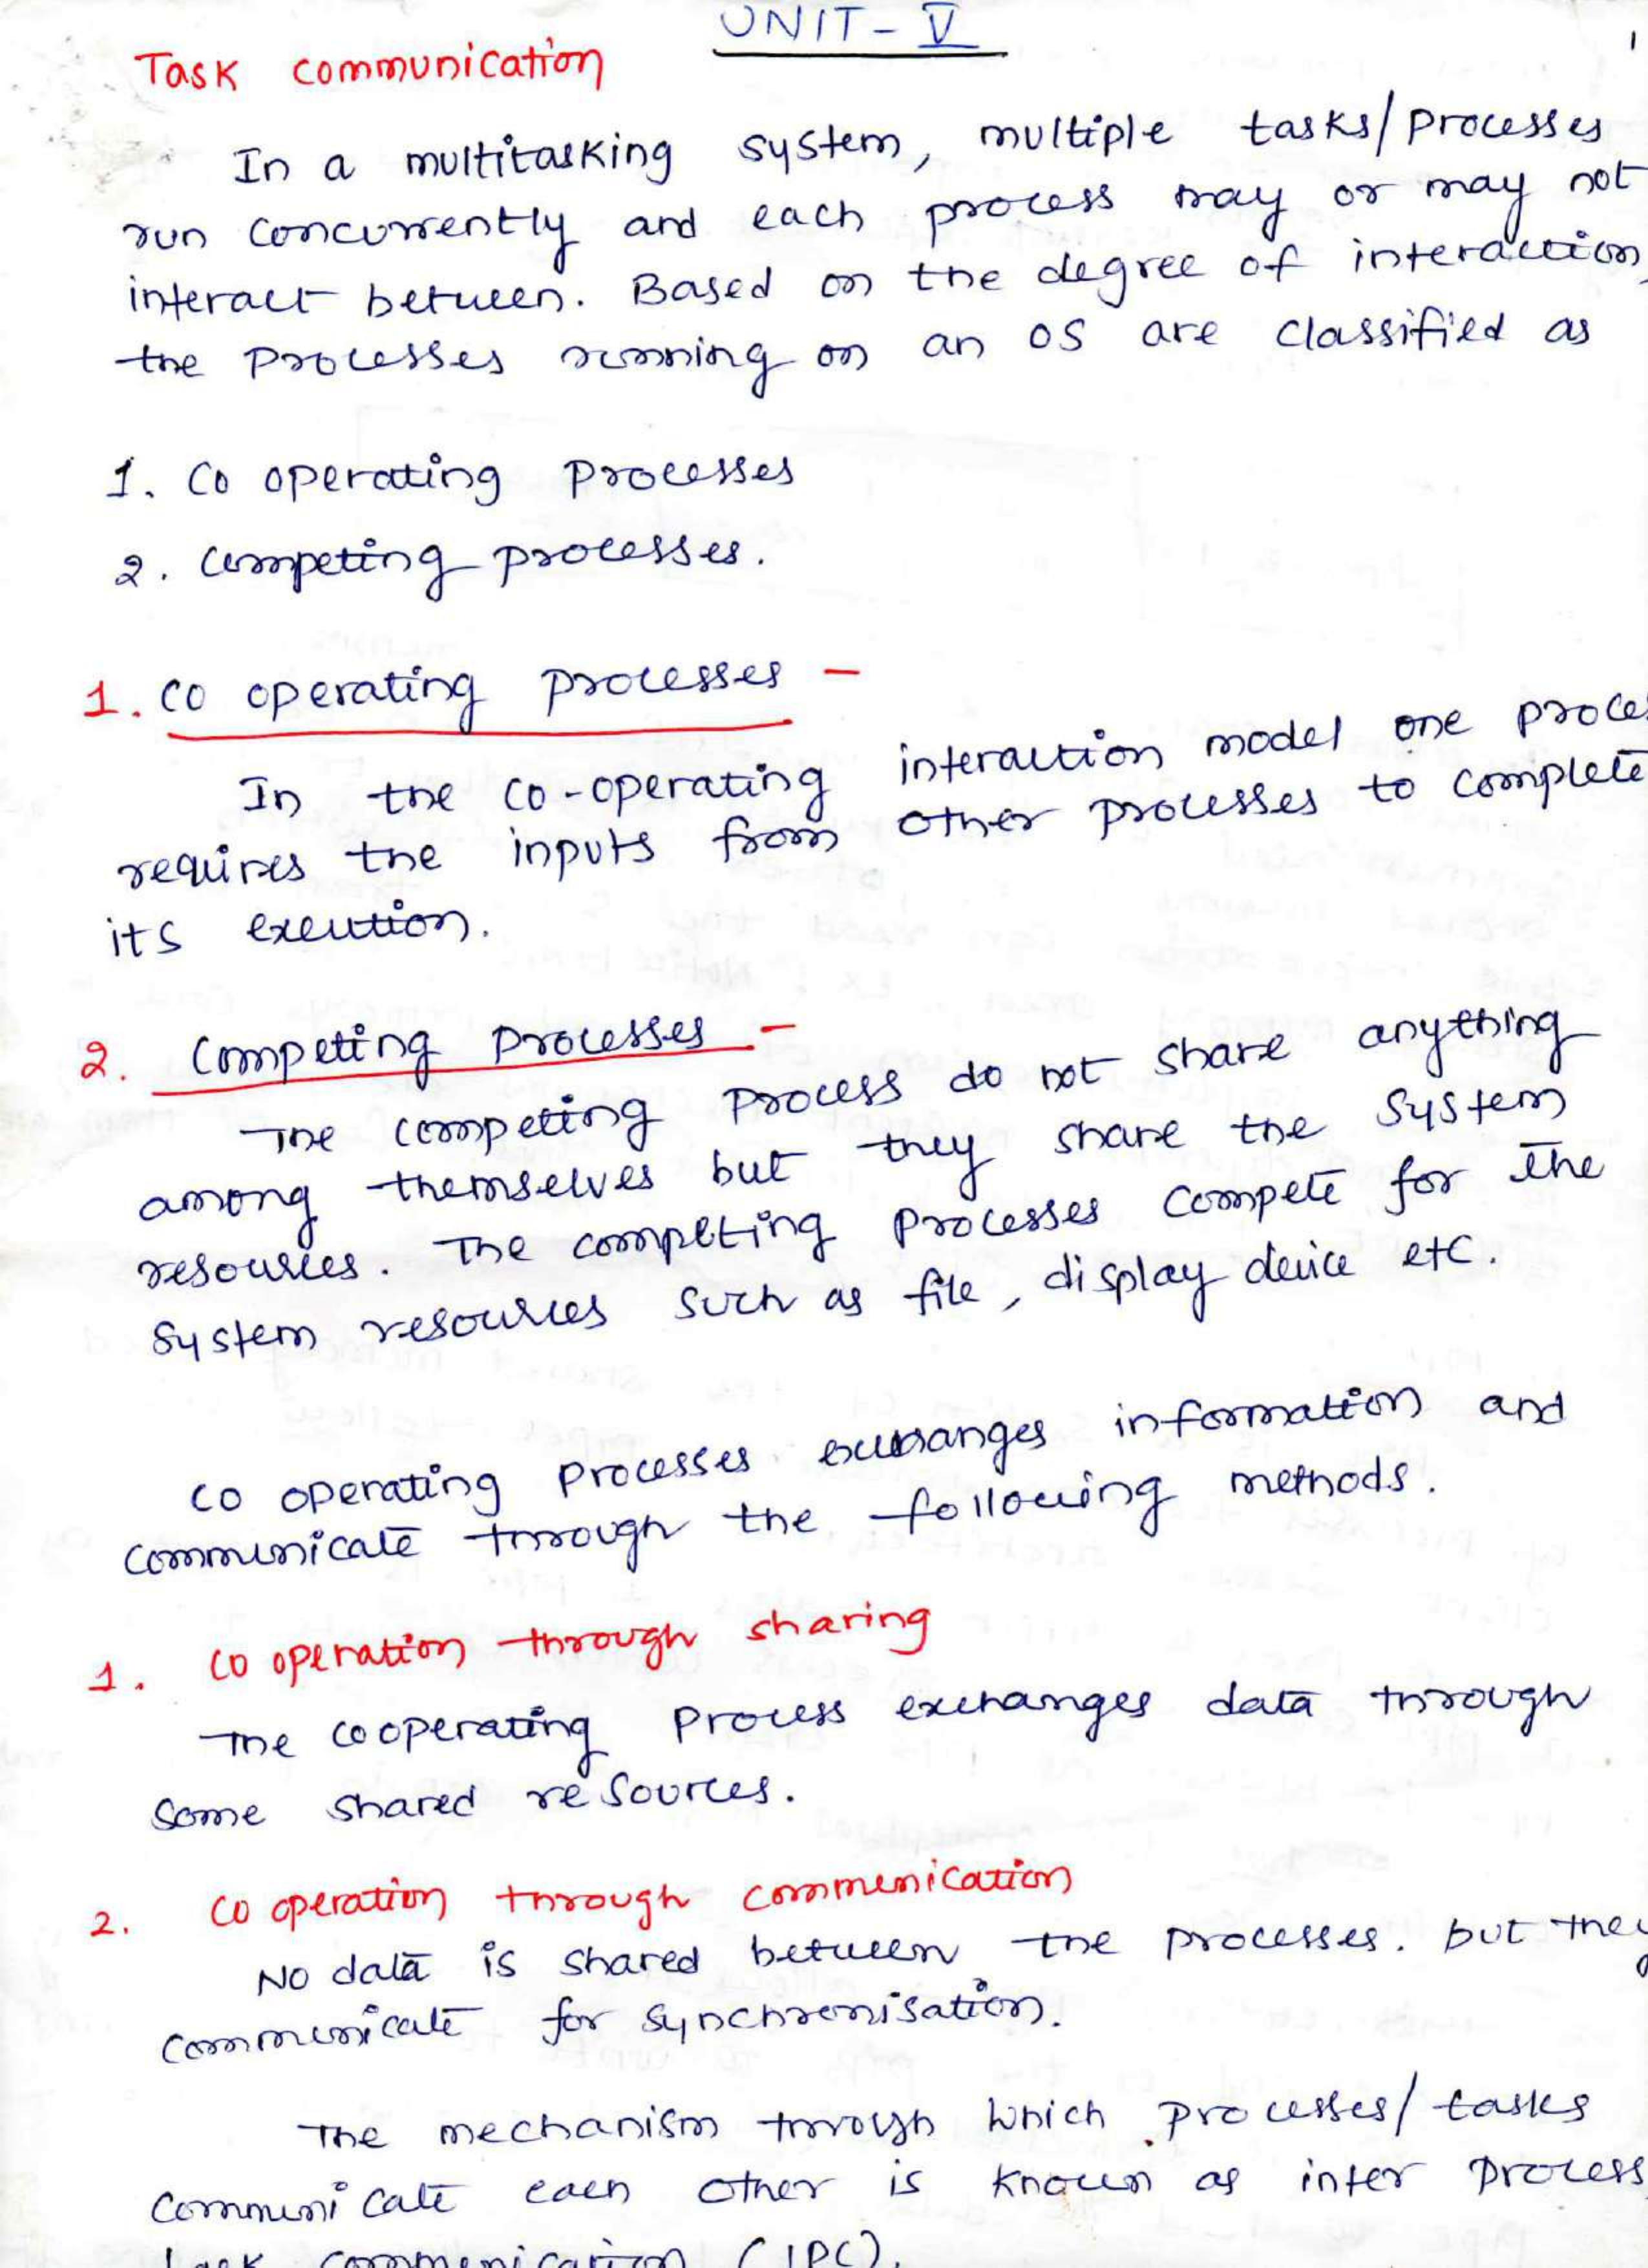 UNIT - V
1
Task communication
In a multitasking system, multiple tasks/processes
run concurrently and each process may or may not
interact between. Based on the degree of interaction,
the processes running on an OS are classified as
1. Co operating processes
2. Competing processes.
1. Co operating processes -
In the co-operating interaction model one proces
requires the inputs from other processes to complete
its execution.
2. Competing Processes -
The competing process do not share anything
among themselves but they share the system
resources. The competing processes compete for the
system resources such as file, display device etc.
Co operating processes exchanges information and
communicate through the following methods.
1. Co operation through sharing
The cooperating process exchanges data through
some shared resources.
2. Co operation through communication
No data is shared between the processes. but they
communicate for synchronisation.
The mechanism through which processes/tasks
communicate each other is known as inter process
task communication (IPC).